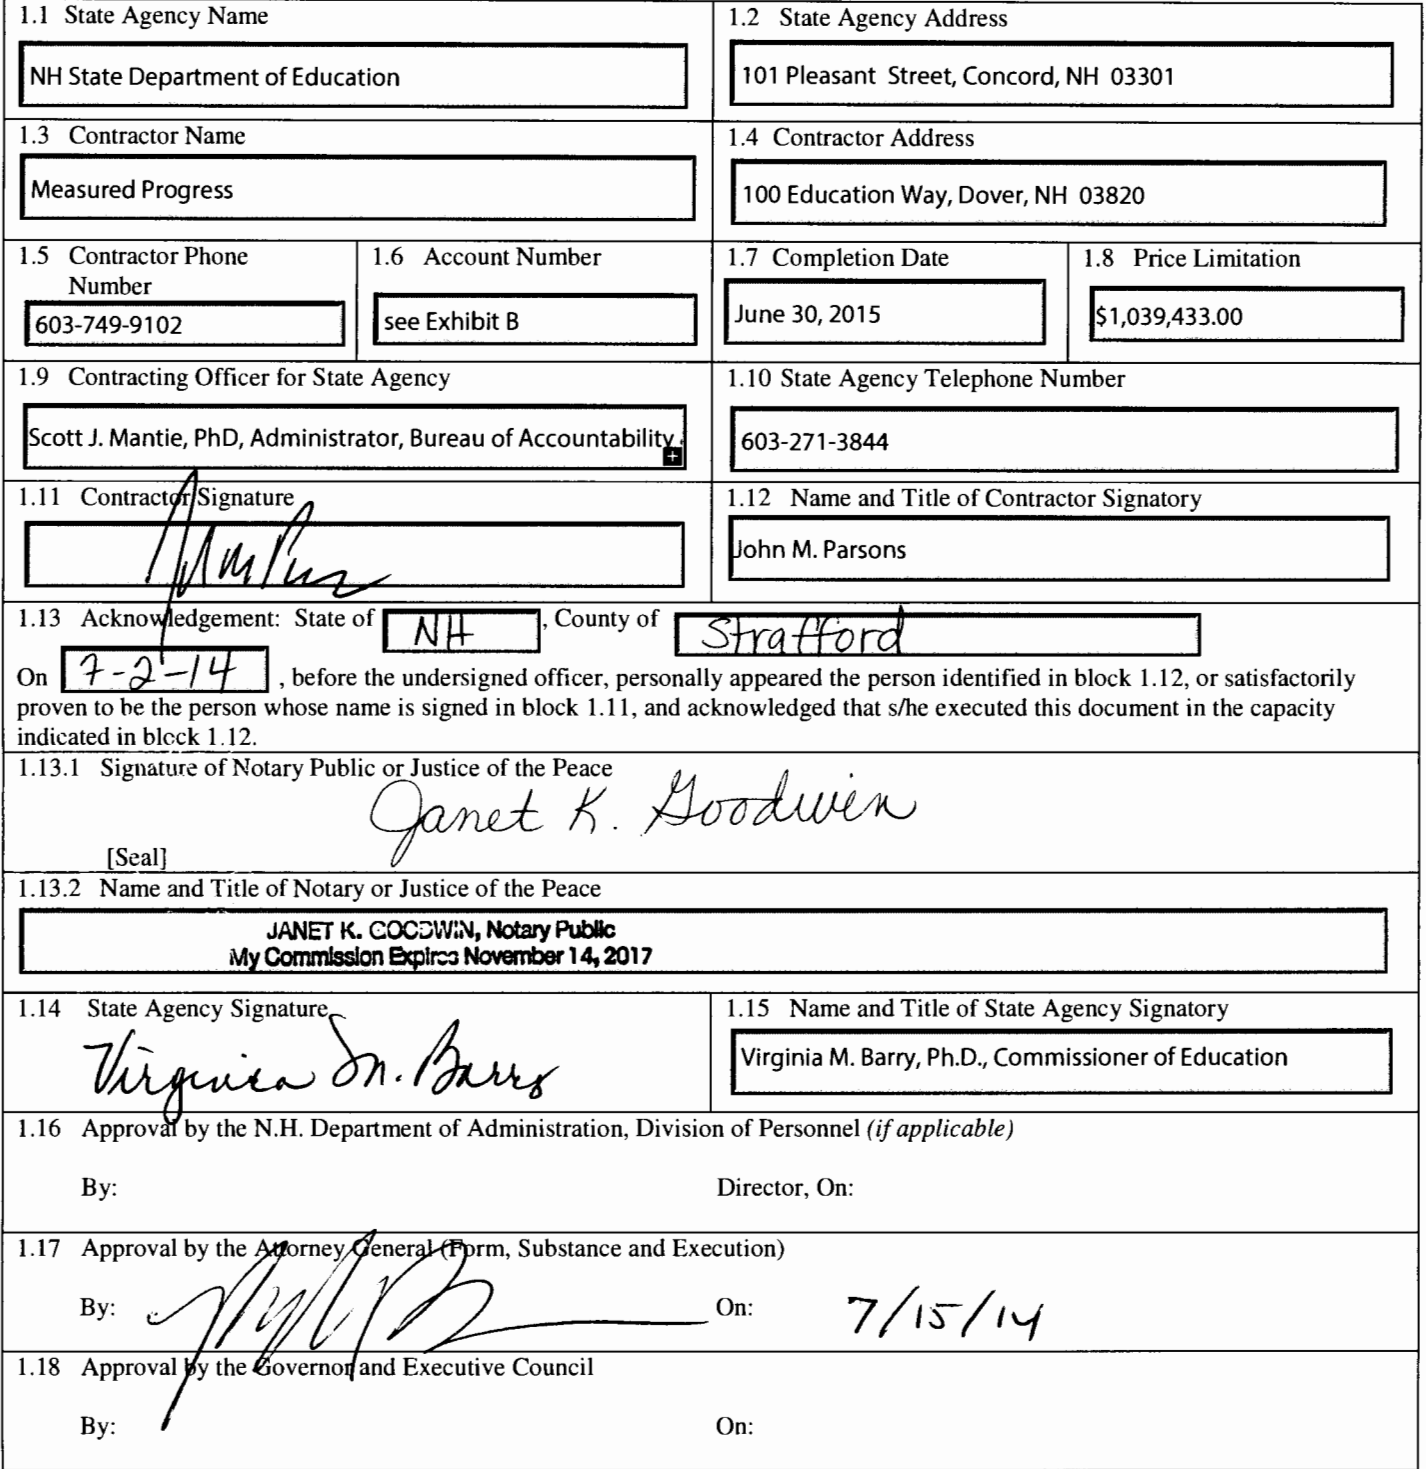 1.1 State Agency Name
NH State Department of Education
1.2 State Agency Address
101 Pleasant Street, Concord, NH 03301
1.3 Contractor Name
Measured Progress
1.4 Contractor Address
100 Education Way, Dover, NH 03820
1.5 Contractor Phone
Number
603-749-9102
1.6 Account Number
see Exhibit B
1.7 Completion Date
June 30, 2015
1.8 Price Limitation
$1,039,433.00
1.9 Contracting Officer for State Agency
Scott J. Mantie, PhD, Administrator, Bureau of Accountability
1.10 State Agency Telephone Number
603-271-3844
1.11 Contractor Signature
1.12 Name and Title of Contractor Signatory
John M. Parsons
1.13 Acknowledgement: State of NH, County of Strafford
On 7-2-14, before the undersigned officer, personally appeared the person identified in block 1.12, or satisfactorily
proven to be the person whose name is signed in block 1.11, and acknowledged that s/he executed this document in the capacity
indicated in block 1.12.
1.13.1 Signature of Notary Public or Justice of the Peace
Janet K. Goodwin
[Seal]
1.13.2 Name and Title of Notary or Justice of the Peace
JANET K. GOODWIN, Notary Public
My Commission Expires November 14, 2017
1.14 State Agency Signature
Virginia M. Barry
1.15 Name and Title of State Agency Signatory
Virginia M. Barry, Ph.D., Commissioner of Education
1.16 Approval by the N.H. Department of Administration, Division of Personnel (if applicable)
By: Director, On:
1.17 Approval by the Attorney General (Form, Substance and Execution)
By: On: 7/15/14
1.18 Approval by the Governor and Executive Council
By: On: